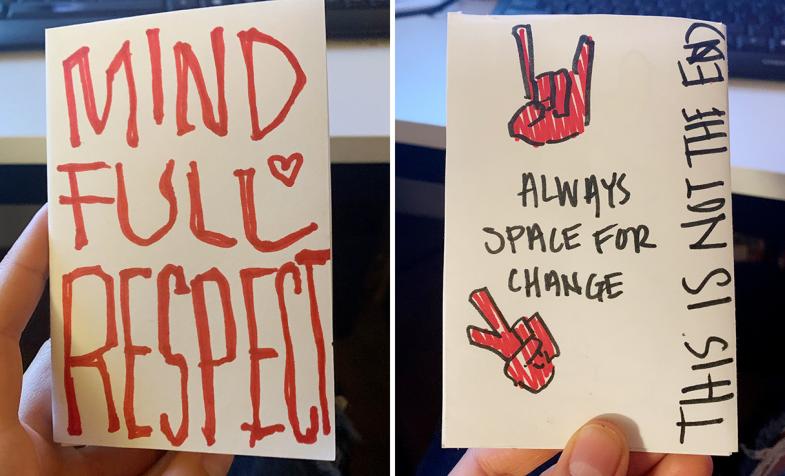 MIND
FULL
RESPECT
ALWAYS
SPACE FOR
CHANGE
THIS IS NOT THE END